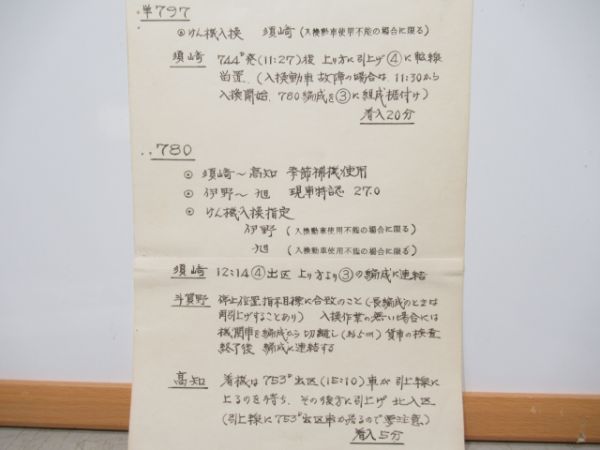 単797
⊙けん機入換 須崎 (入換動車使用不能の場合に限る)
須崎 744D発(11:27)後 上り方に引上げ④に転線
留置. (入換動車故障の場合は、11:30から
入換開始、780編成を③に組成据付け)
着入20分
‥780
⊙ 須崎〜高知 季節補機使用
⊙ 伊野〜旭 現車特認 27.0
⊙ けん機入換指定
伊野 (入換動車使用不能の場合に限る)
旭 (入換動車使用不能の場合に限る)
須崎 12:14④出区 上り方より③の編成に連結
斗賀野 停止位置指示目標に合致のこと(長編成のときは
再引上げすることあり) 入換作業の無い場合には
機関車を編成から切離し(約5m) 貨車の検査
終了後 編成に連結する
高知 着機は753D出区(15:10)車が引上線に
上るのを待ち、その後方に引上げ 北入区
(引上線に753D出区車が居るので要注意)
着入5分